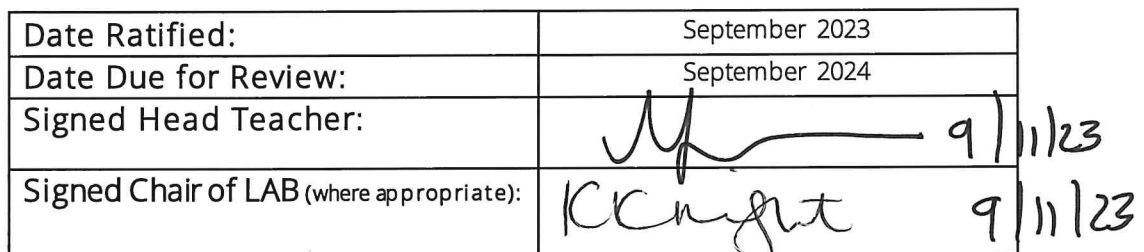 Date Ratified: September 2023
Date Due for Review: September 2024
Signed Head Teacher: 9/11/23
Signed Chair of LAB (where appropriate): KKnight 9/11/23